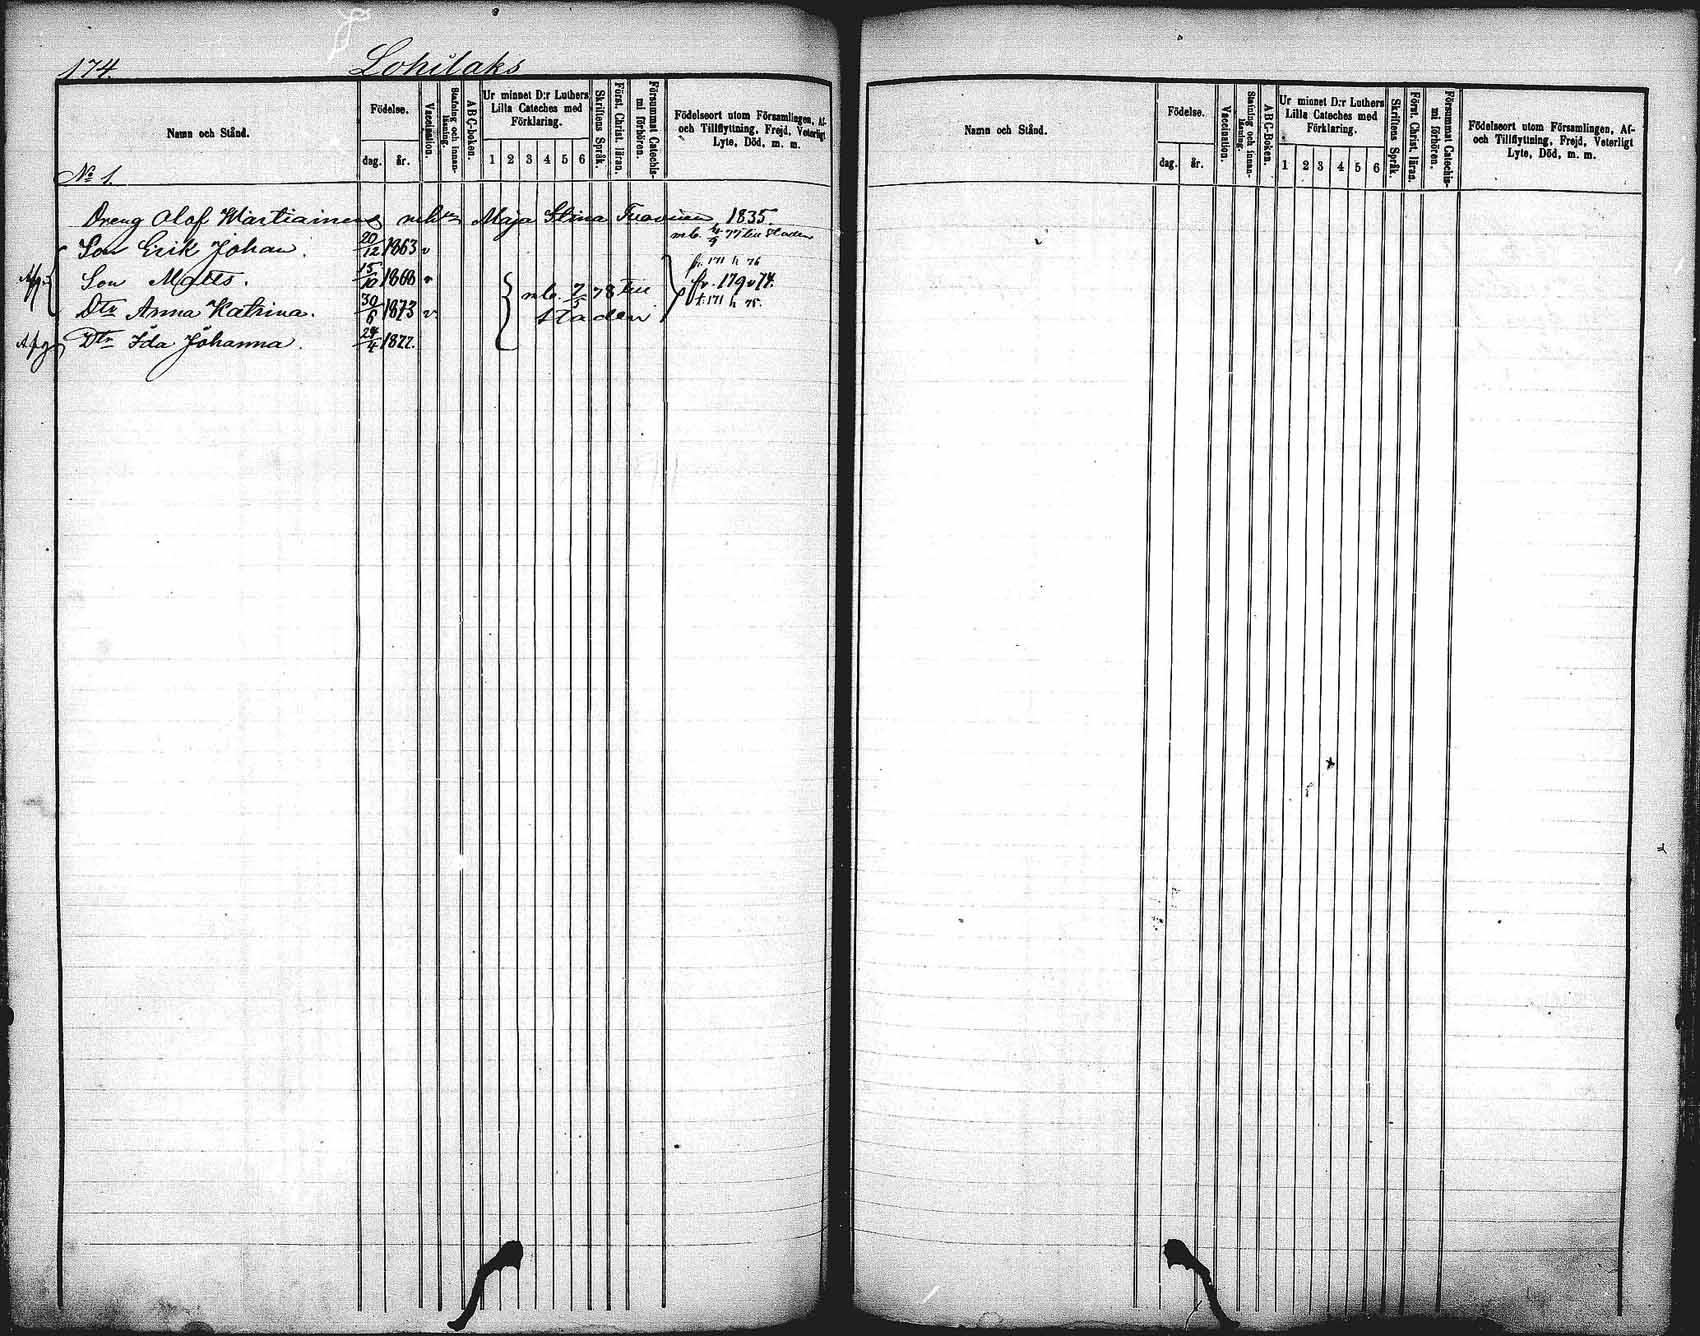 174.
Lohilaks
Namn och Stånd.
Födelse.
dag.
år.
Vaccination.
Stafning och innan-läsning.
ABC-boken.
Ur minnet D:r Luthers
Lilla Cateches med
Förklaring.
1 2 3 4 5 6
Skriftens Språk.
Först. Christ. läran.
Försummat Catechis-
mi förhören.
Födelseort utom Församlingen, Af-
och Tillflyttning, Frejd, Veterligt
Lyte, Död, m. m.
No 1.
Dreng Olof Martiainens Maja Stina 1835.
mb. 4/9 77 till staden
Son Erik Johan. 20/12 1863 v
fr. 171 h 76
Son Matts. 15/10 1868 v
fr. 179 v 74.
mb. 7/5 78 till
staden
Dtr Anna Katrina. 30/6 1873 v.
t. 171 h 75.
Dtr Ida Johanna. 24/4 1877.
Namn och Stånd.
Födelse.
dag.
år.
Vaccination.
Stafning och innan-läsning.
ABC-Boken.
Ur minnet D:r Luthers
Lilla Cateches med
Förklaring.
1 2 3 4 5 6
Skriftens Språk.
Först. Christ. läran.
Försummat Catechis-
mi förhören.
Födelseort utom Församlingen, Af-
och Tillflyttning, Frejd, Veterligt
Lyte, Död, m. m.